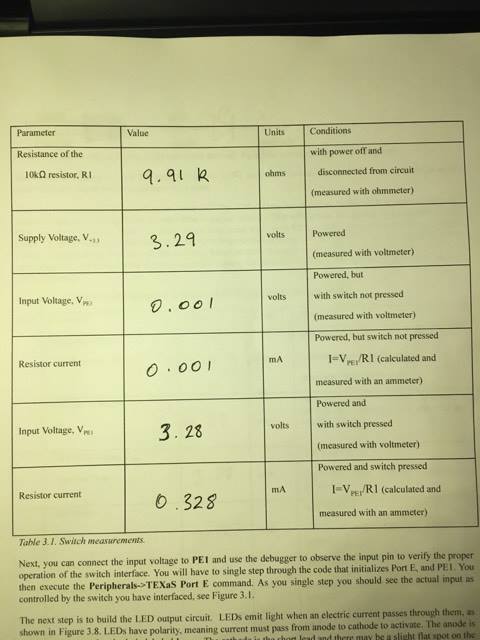 Parameter Value Units Conditions
Resistance of the
10kΩ resistor, R1
9.91 k
ohms
with power off and
disconnected from circuit
(measured with ohmmeter)
Supply Voltage, V+3.3
3.29
volts
Powered
(measured with voltmeter)
Input Voltage, VPE1
0.001
volts
Powered, but
with switch not pressed
(measured with voltmeter)
Resistor current
0.001
mA
Powered, but switch not pressed
I=VPE1/R1 (calculated and
measured with an ammeter)
Input Voltage, VPE1
3.28
volts
Powered and
with switch pressed
(measured with voltmeter)
Resistor current
0.328
mA
Powered and switch pressed
I=VPE1/R1 (calculated and
measured with an ammeter)
Table 3.1. Switch measurements.
Next, you can connect the input voltage to PE1 and use the debugger to observe the input pin to verify the proper
operation of the switch interface. You will have to single step through the code that initializes Port E, and PE1. You
then execute the Peripherals->TExaS Port E command. As you single step you should see the actual input as
controlled by the switch you have interfaced, see Figure 3.1.
The next step is to build the LED output circuit. LEDs emit light when an electric current passes through them, as
shown in Figure 3.8. LEDs have polarity, meaning current must pass from anode to cathode to activate. The anode is
the short lead and there may be a slight flat spot on the